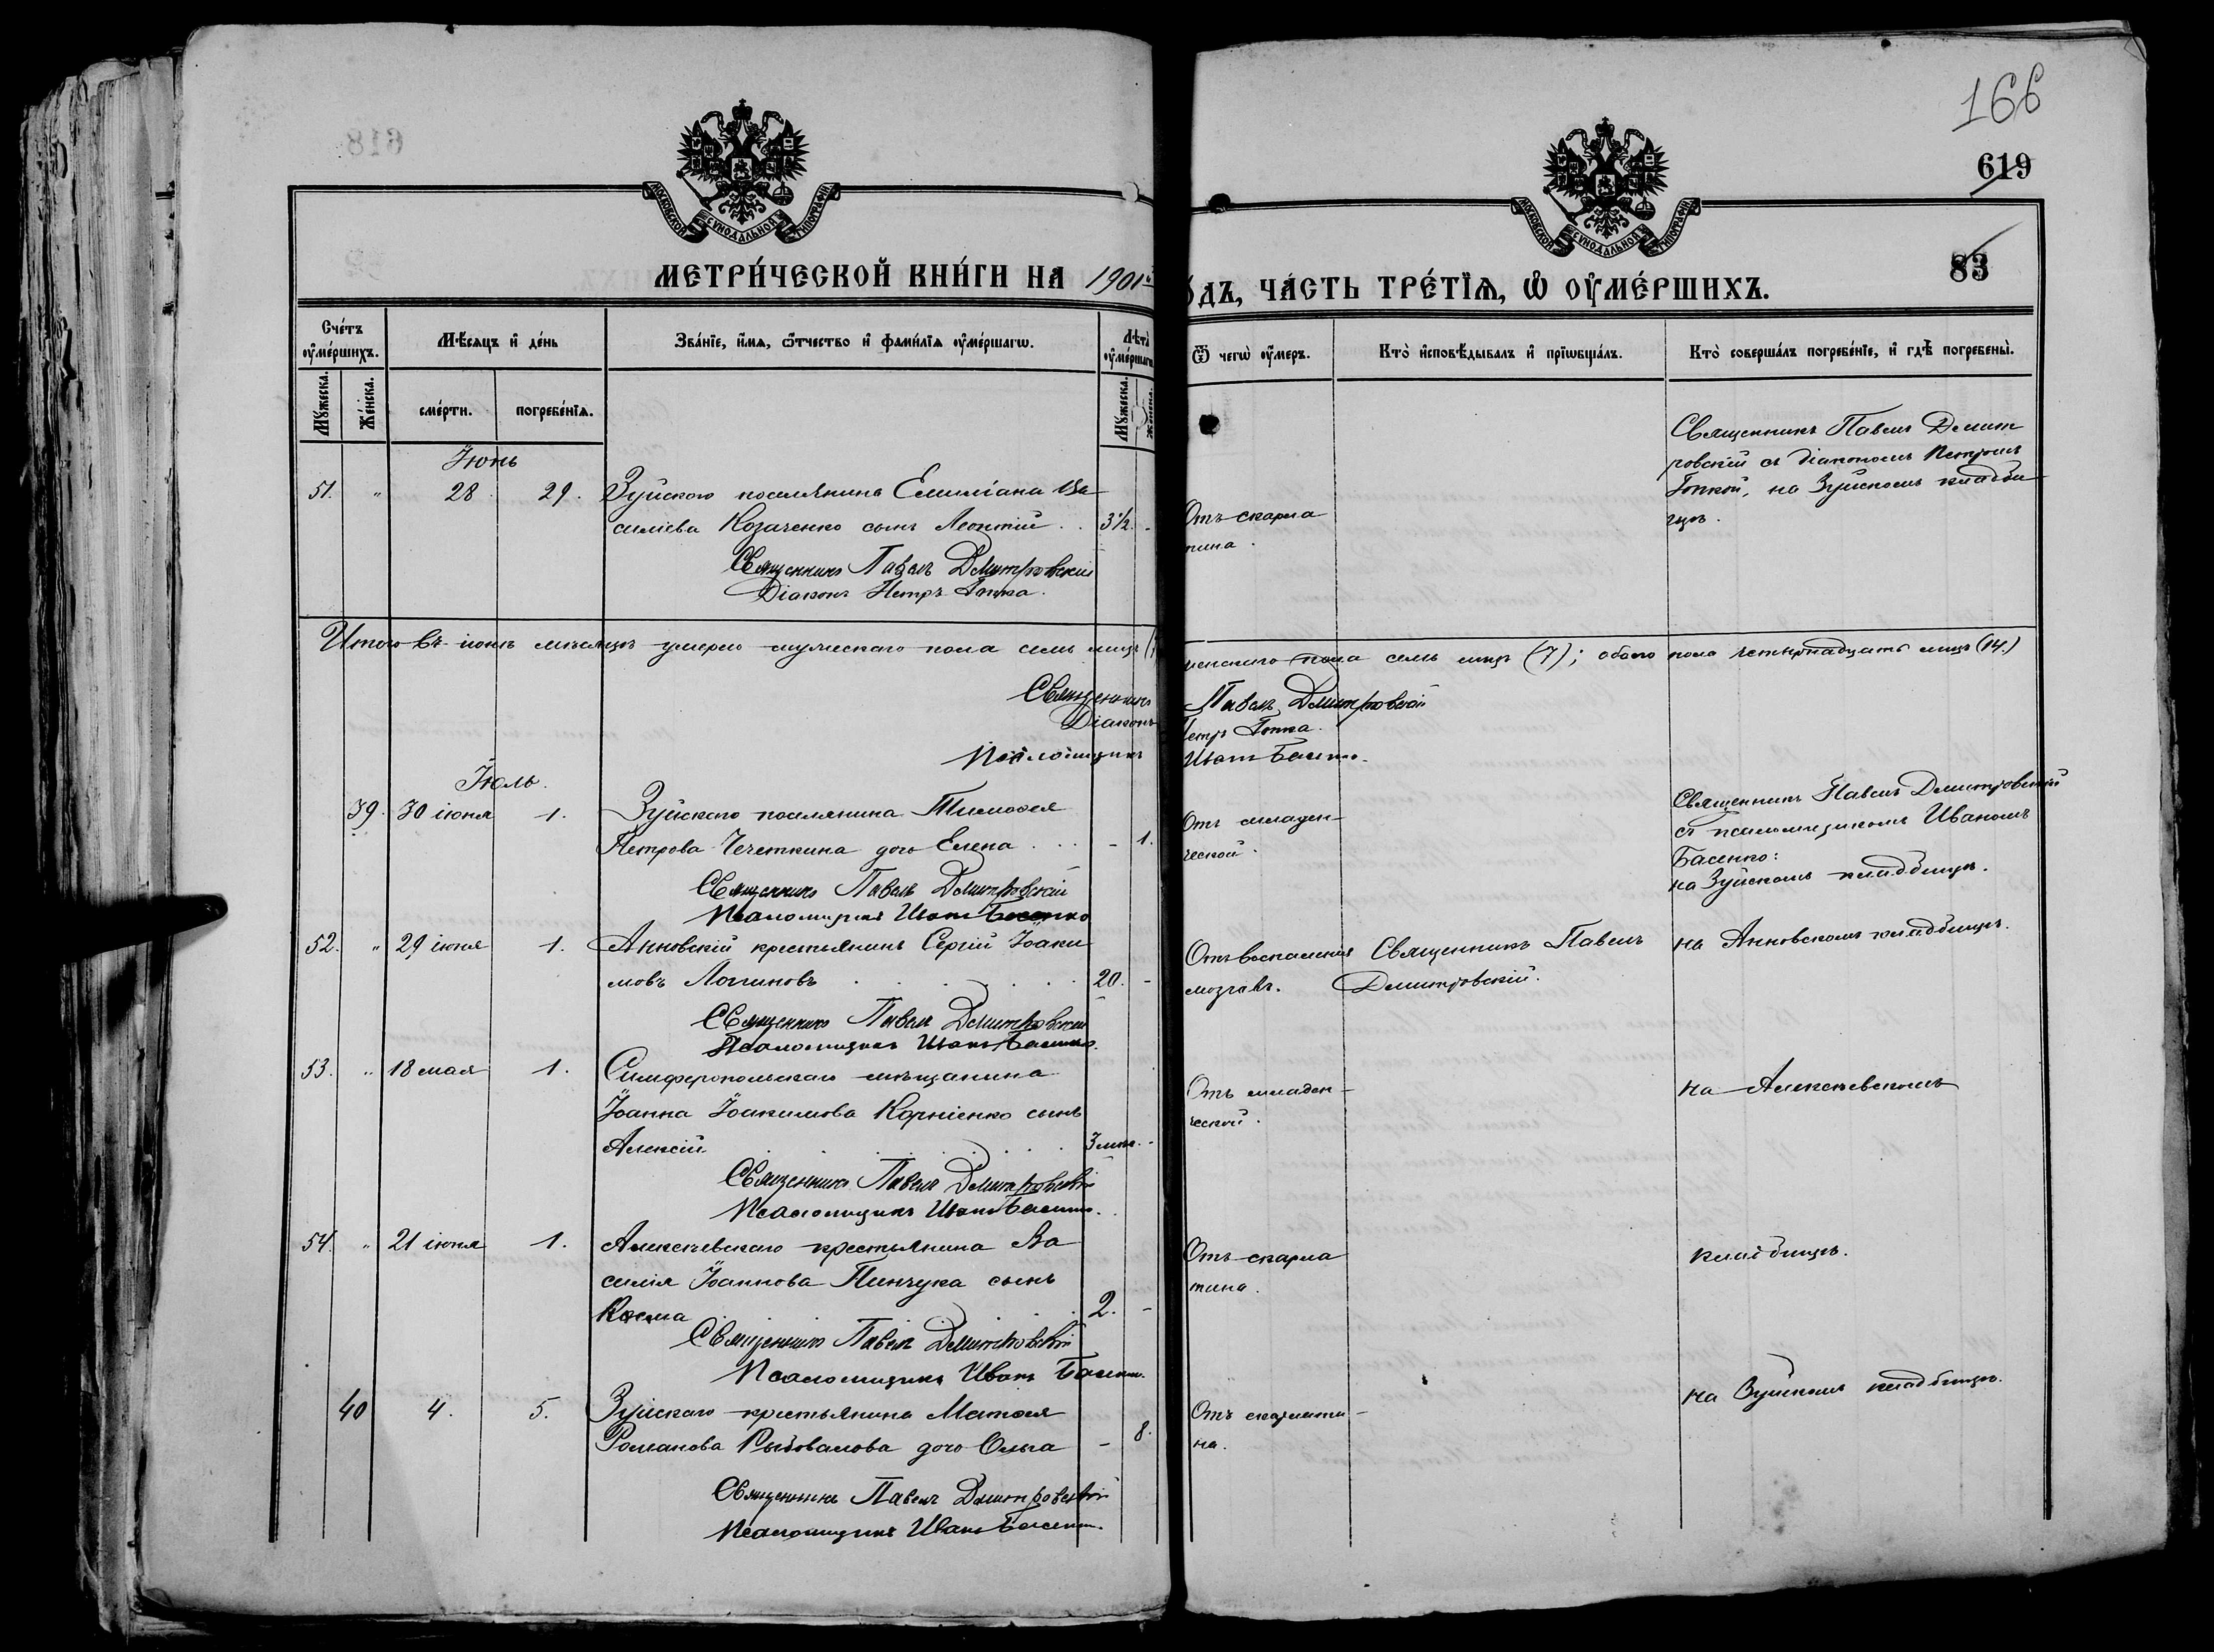 618
166
619
83
МОСКОВСКОЙ СУНОДАЛЬНОЙ ТИПОГРАФІИ
МОСКОВСКОЙ СУНОДАЛЬНОЙ ТИПОГРАФІИ
МЕТРИ́ЧЕСКОЙ КНИ́ГИ НА 1901
ДЪ, ЧА́СТЬ ТРЕ́ТЇѦ, Ѡ ОУМЕ́РШИХЪ.
Сче́тъ оуме́ршихъ.
Мѣ́сяцъ и де́нь
Зва́нїе, и́мѧ, ѻ́тчество и фами́лїѧ оуме́ршагѡ.
Лѣта̀ оуме́ршагѡ
Мꙋжеска.
Же́нска.
сме́рти.
погребе́нїѧ.
Мꙋжеска.
Же́нска.
Ѿ чегѡ̀ оу́меръ.
Кто̀ и҆сповѣ́дывалъ и҆ прїѡбща́лъ.
Кто̀ соверша́лъ погребе́нїе, и҆ гдѣ̀ погребены̀.
Іюнь
51. " 28 29. Зуйскаго поселянина Емиліана Ва
силіева Козаченко сынъ Леонтій . . 3½. -
Священникъ Павелъ Дмитровскій
Діаконъ Петръ Гопка.
Отъ скарла
тина.
Священникъ Павелъ Дмит
ровскій съ діакономъ Петромъ
Гопкой, на Зуйскомъ кладби
щѣ.
Итого въ іюнѣ мѣсяцѣ умерло мужескаго пола семь лицъ
женскаго пола семь лицъ (7); обоего пола четырнадцать лицъ (14.)
Священникъ Павелъ Дмитровскій
Діаконъ Петръ Гопка.
Псаломщикъ Иванъ Басенко.
Іюль.
39. 30 іюня 1. Зуйскаго поселянина Тимофея
Петрова Чечеткина дочь Елена . . . - 1.
Священникъ Павелъ Дмитровскій
Псаломщикъ Иванъ Басенко
Отъ младен-
ческой.
Священникъ Павелъ Дмитровскій
съ псаломщикомъ Иваномъ
Басенко:
на Зуйскомъ кладбищѣ.
52. " 29 іюня 1. Анновскій крестьянинъ Сергій Іоаки
мовъ Логиновъ . . . . . 20. -
Священникъ Павелъ Дмитровскій
Псаломщикъ Иванъ Басенко.
Отъ воспаленія
мозговъ.
Священникъ Павелъ
Дмитровскій.
на Анновскомъ кладбищѣ.
53. " 18 мая 1. Симферопольскаго мѣщанина
Іоанна Іоакимова Корніенко сынъ
Алексій . . . . . . 3 мѣс. -
Священникъ Павелъ Дмитровскій
Псаломщикъ Иванъ Басенко.
Отъ младен-
ческой.
на Алексѣевскомъ
54. " 21 іюня 1. Алексѣевскаго крестьянина Ва
силія Іоаннова Пинчука сынъ
Косма . . . . . 2. -
Священникъ Павелъ Дмитровскій
Псаломщикъ Иванъ Басенко.
Отъ скарла
тина.
кладбищѣ.
40 4. 5. Зуйскаго крестьянина Матфея
Романова Рыбовалова дочь Ольга - 8.
Священникъ Павелъ Дмитровскій
Псаломщикъ Иванъ Басенко.
Отъ скарлати-
на.
на Зуйскомъ кладбищѣ.